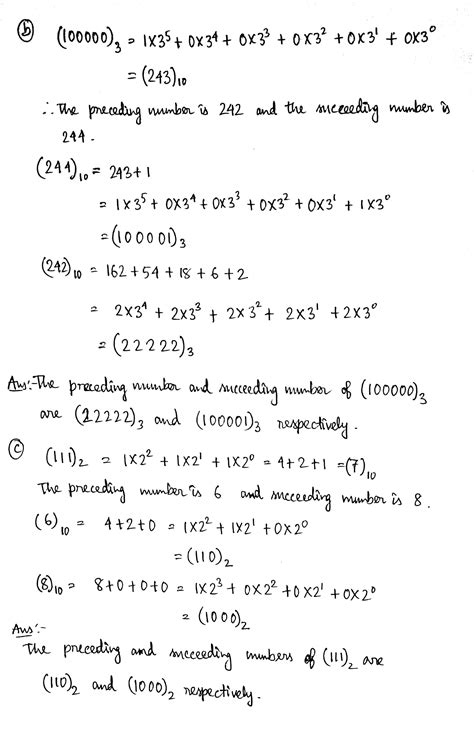 (b) (100000)₃ = 1×3⁵ + 0×3⁴ + 0×3³ + 0×3² + 0×3¹ + 0×3⁰
= (243)₁₀
∴ The preceding number is 242 and the succeeding number is
244.
(244)₁₀ = 243+1
= 1×3⁵ + 0×3⁴ + 0×3³ + 0×3² + 0×3¹ + 1×3⁰
= (100001)₃
(242)₁₀ = 162+54+18+6+2
= 2×3⁴ + 2×3³ + 2×3² + 2×3¹ + 2×3⁰
= (22222)₃
Ans:- The preceding number and succeeding number of (100000)₃
are (22222)₃ and (100001)₃ respectively.
(c) (111)₂ = 1×2² + 1×2¹ + 1×2⁰ = 4+2+1 = (7)₁₀
The preceding number is 6 and succeeding number is 8.
(6)₁₀ = 4+2+0 = 1×2² + 1×2¹ + 0×2⁰
= (110)₂
(8)₁₀ = 8+0+0+0 = 1×2³ + 0×2² + 0×2¹ + 0×2⁰
= (1000)₂
Ans:-
The preceding and succeeding numbers of (111)₂ are
(110)₂ and (1000)₂ respectively.